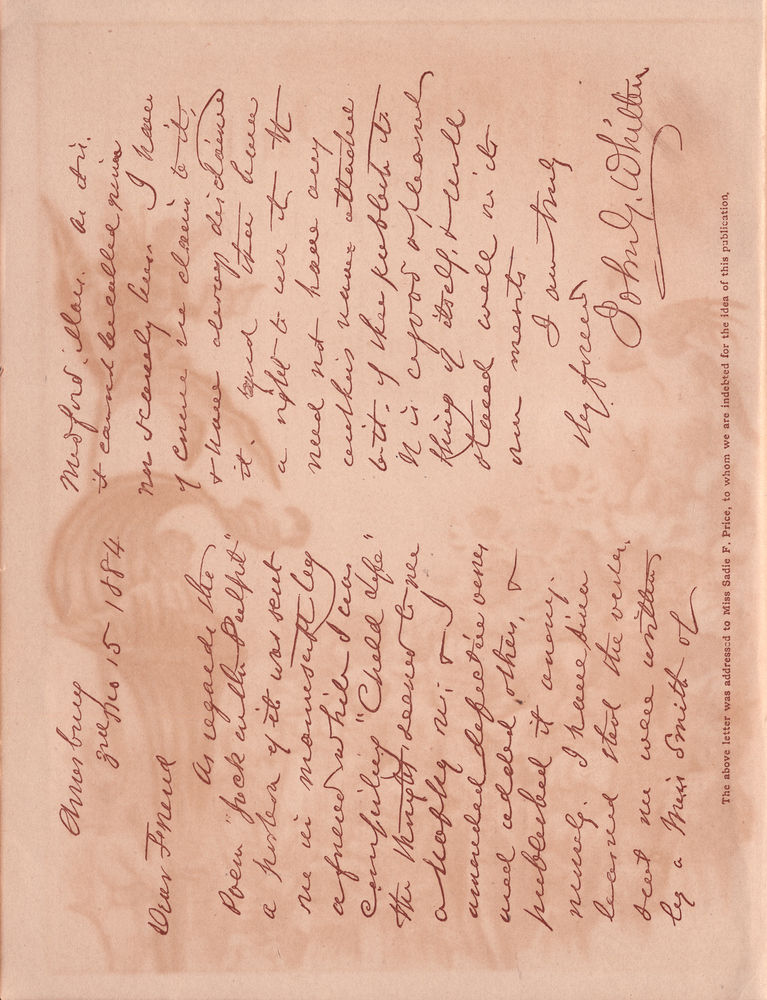 Amesbury
3rd Mo 15 1884
Dear Friend
As regards the
Poem "Jack in the Pulpit"
a portion of it was sent
me in manuscript by
a friend while I was
compiling "Child Life"
The thought seemed to me
a happy one & I
amended defective verses
and added others, &
published it anony-
mously. I have since
learned that the verses
sent me were written
by a Miss Smith of
Medford, Mass. As it is,
it cannot be called mine
nor scarcely hers. I have
of course no claim to it,
& have always disclaimed
it. and thee have
a right to use it. It
need not have any
author's name attached
to it, if thee publish it.
It is a good & pleasant
thing of itself, & will
stand well on its
own merits
I am truly
thy friend
John G. Whittier
The above letter was addressed to Miss Sadie F. Price, to whom we are indebted for the idea of this publication.